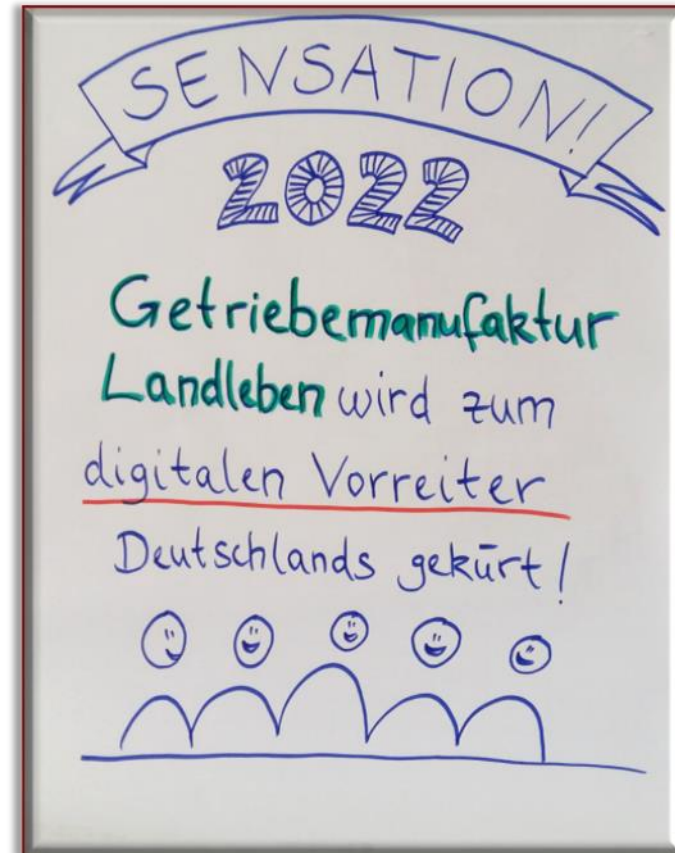 SENSATION!
2022
Getriebemanufaktur
Landleben wird zum
digitalen Vorreiter
Deutschlands gekürt!